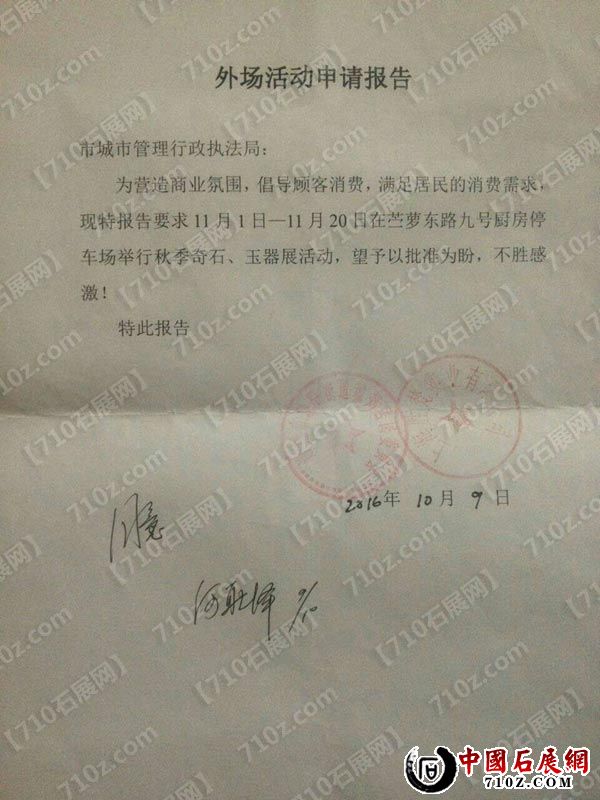 外场活动申请报告
市城市管理行政执法局：
为营造商业氛围，倡导顾客消费，满足居民的消费需求，
现特报告要求11月1日—11月20日在苎萝东路九号厨房停
车场举行秋季奇石、玉器展活动，望予以批准为盼，不胜感
激！
特此报告
2016年 10月 9日
同意
9/10
中國石展網
710Z.COM
【710石展网】
710z.com